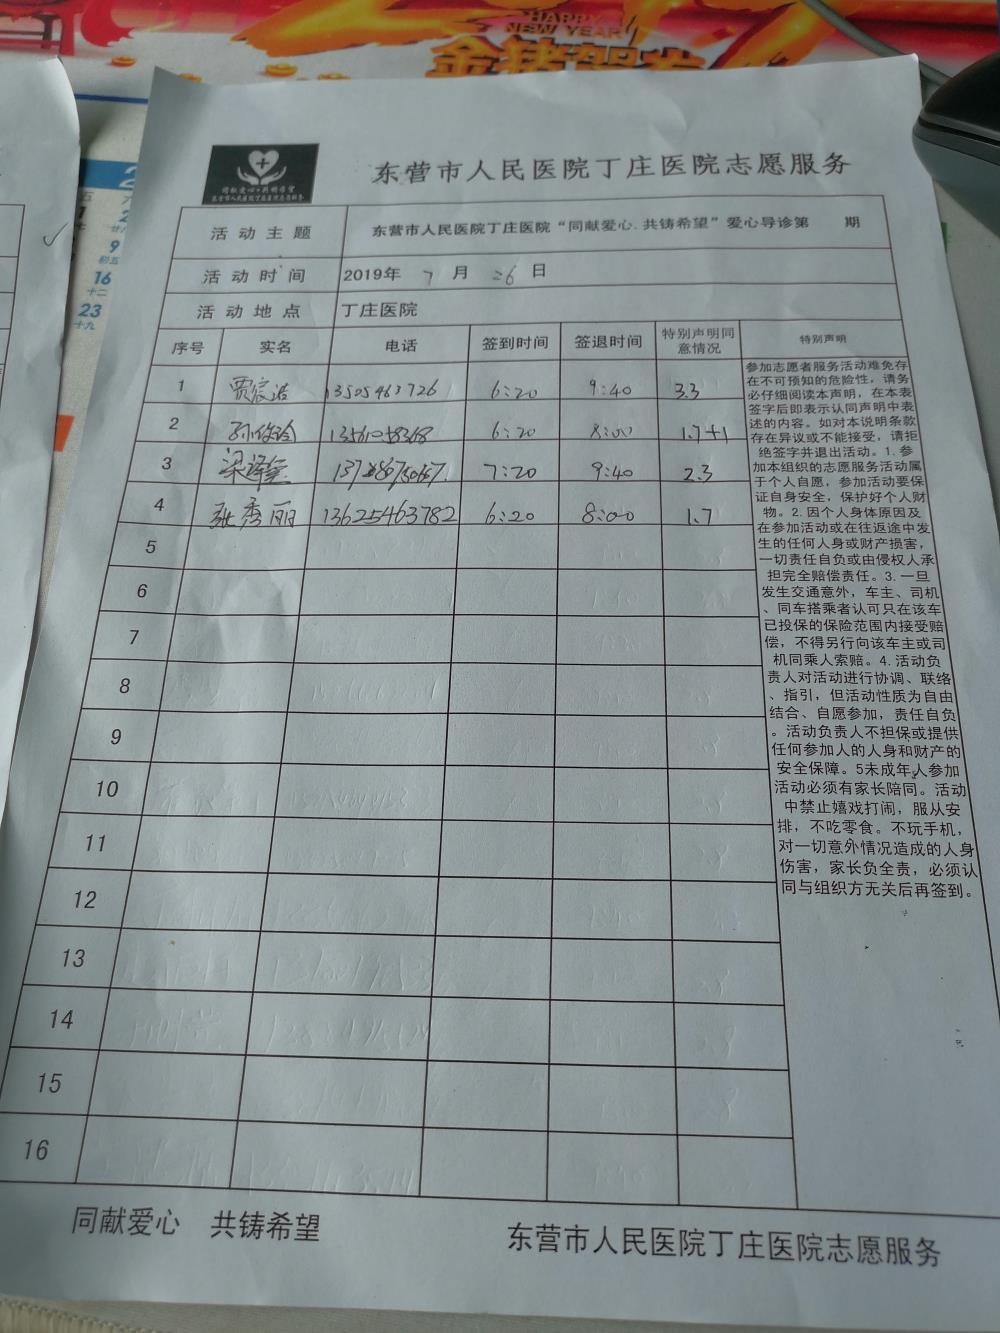 HAPPY
NEW YEAR
金猪贺岁
同献爱心·共铸希望
东营市人民医院丁庄医院志愿服务
东营市人民医院丁庄医院志愿服务
活动主题 东营市人民医院丁庄医院“同献爱心.共铸希望”爱心导诊第 期
活动时间 2019年 7 月 26 日
活动地点 丁庄医院
序号 实名 电话 签到时间 签退时间 特别声明同意情况 特别声明
1 贾宸浩 13505463726 6:20 9:40 3.3
2 6:20 8:00 1.7+1
3 7:20 9:40 2.3
4 张秀丽 13625463782 6:20 8:00 1.7
5
6
7
8
9
10
11
12
13
14
15
16
参加志愿者服务活动难免存
在不可预知的危险性，请务
必仔细阅读本声明，在本表
签字后即表示认同声明中表
述的内容。如对本说明条款
存在异议或不能接受，请拒
绝签字并退出活动。1.参
加本组织的志愿服务活动属
于个人自愿，参加活动要保
证自身安全，保护好个人财
物。2.因个人身体原因及
在参加活动或在往返途中发
生的任何人身或财产损害，
一切责任自负或由侵权人承
担完全赔偿责任。3.一旦
发生交通意外，车主、司机
、同车搭乘者认可只在该车
已投保的保险范围内接受赔
偿，不得另行向该车主或司
机同乘人索赔。4.活动负
责人对活动进行协调、联络
、指引，但活动性质为自由
结合、自愿参加，责任自负
。活动负责人不担保或提供
任何参加人的人身和财产的
安全保障。5未成年人参加
活动必须有家长陪同。活动
中禁止嬉戏打闹，服从安
排，不吃零食。不玩手机，
对一切意外情况造成的人身
伤害，家长负全责，必须认
同与组织方无关后再签到。
同献爱心 共铸希望 东营市人民医院丁庄医院志愿服务
9
16
十二
23
十九